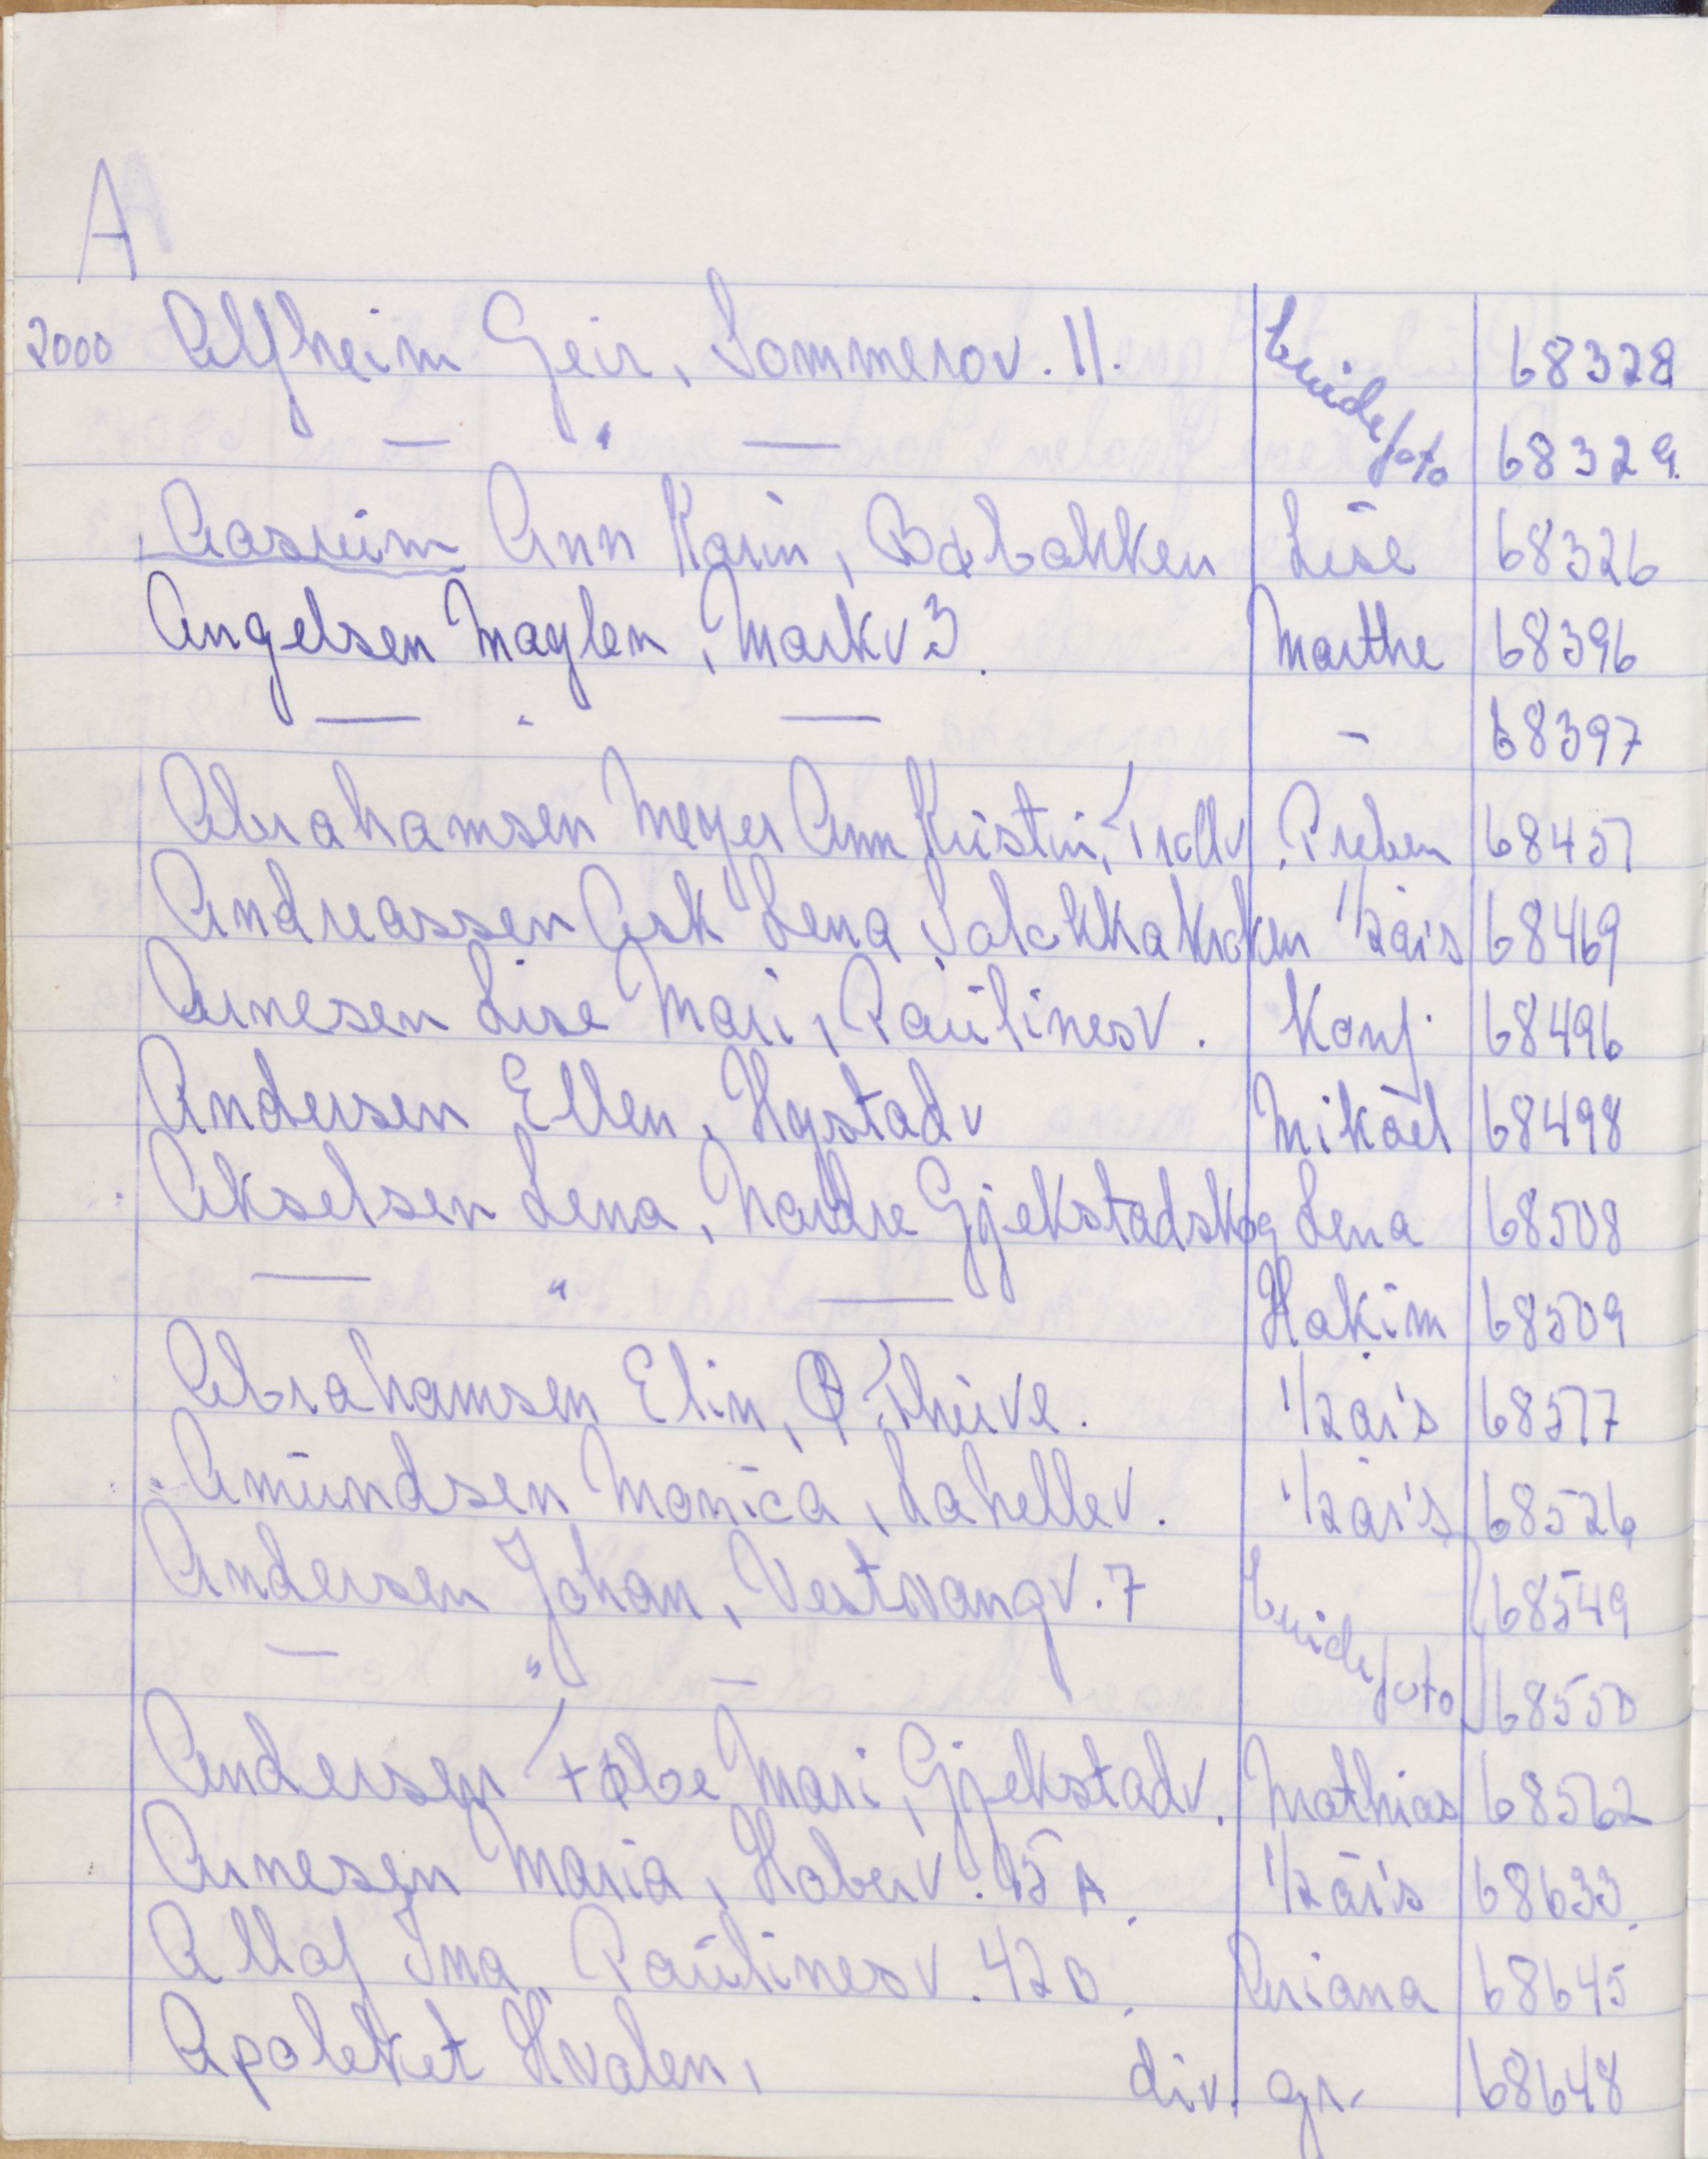 A
2000 Alfheim Geir, Sommerov. 11. bruide 68328
— " — foto 68329.
Aasheim Ann Karin, Bøbakken Lise 68326
Angelsen Maylen, Markv 3. Marthe 68396
— " — - 68397
Abrahamsen Meyer Ann Kristin, Trollv. Preben 68457
Andreassen Ask Lena, 1/2 års 68469
Arnesen Lise Mari, Paulinesv. Konf. 68496
Andersen Ellen, Hystadv Mikael 68498
Akselsen Lena, Nordre Gjekstadskog Lena 68508
— " — Hakim 68509
Abrahamsen Elin, Ø. 1/2 års 68577
Amundsen Monica, Lahellev. 1/2 års 68526
Andersen Johan, Vestvangv. 7 bruide 68549
— " — foto 68550
Andersen Tobe Mari, Gjekstadv. Mathias 68562
Arnesen Maria, Haberv. 45 A. 1/2 års 68633.
Allaj Ina, Paulinesv. 42 D. Ariana 68645
Apoteket Hvalen, div. gr. 68648